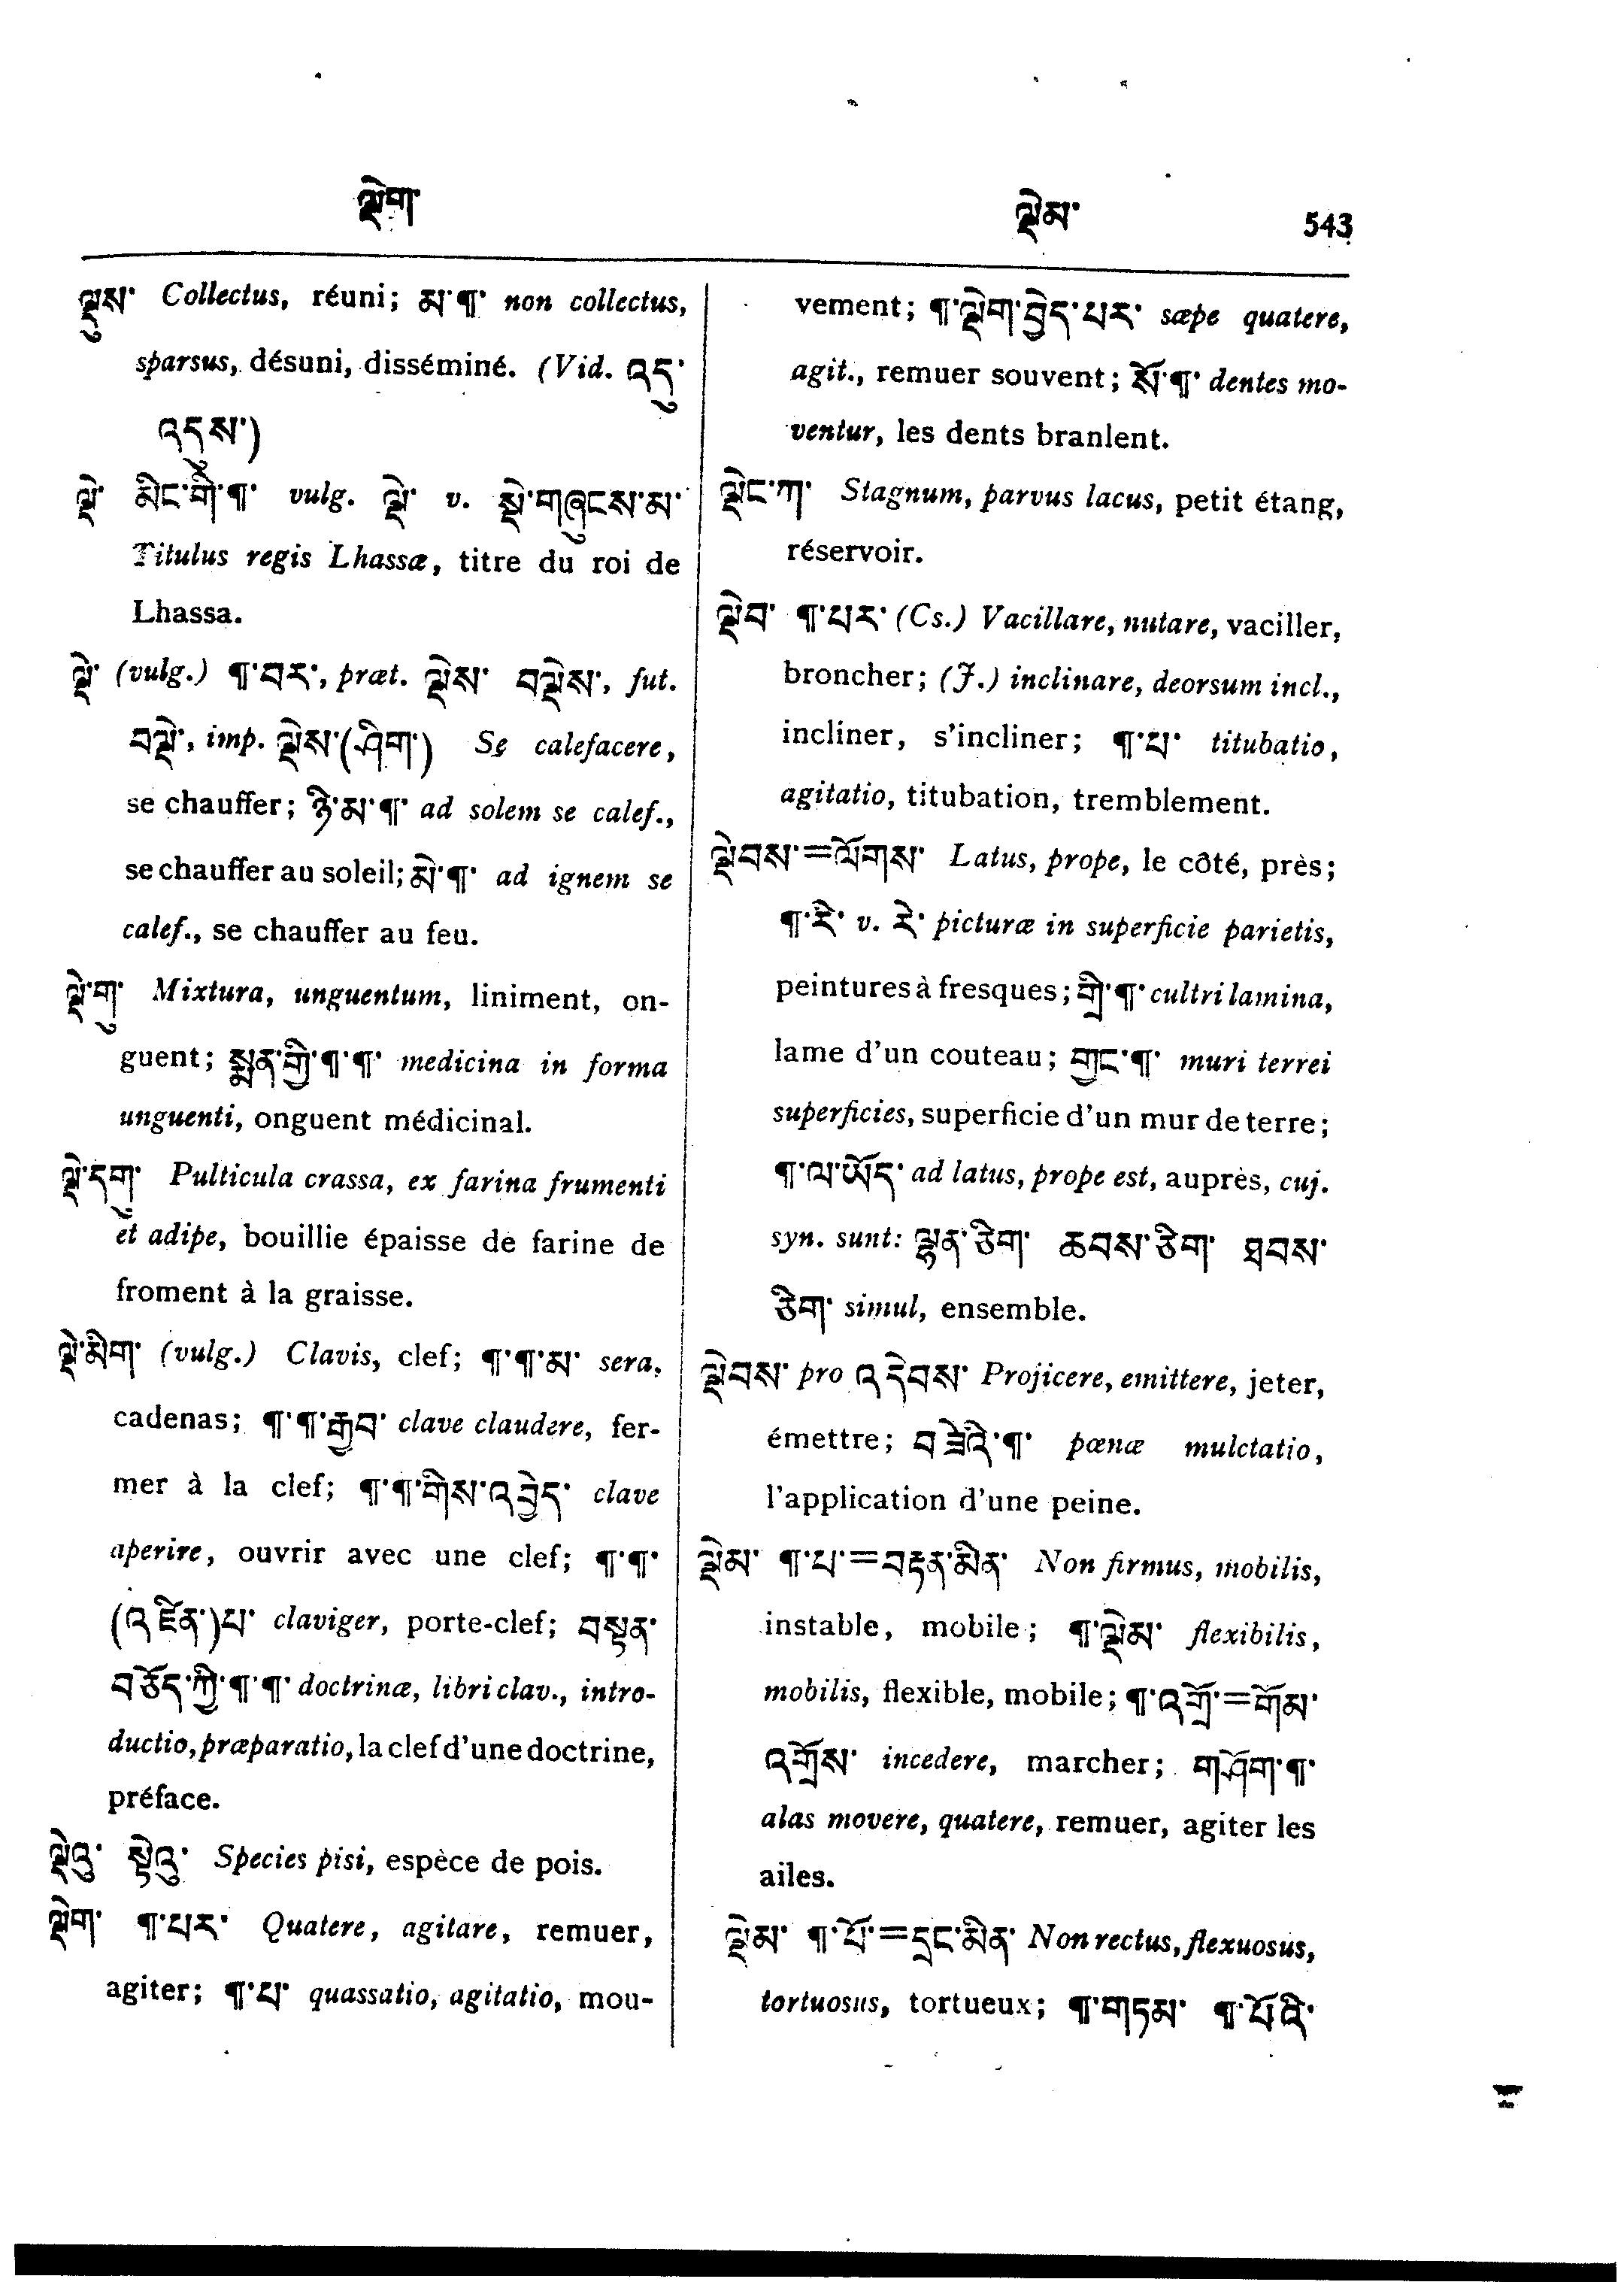 ལྡེག་
ལྡེམ་ 543
ལྡུས་ Collectus, réuni; མ་¶་ non collectus,
sparsus, désuni, disséminé. (Vid. འདུ་
འདུས་)
ལྡེ་ མིང་གི་¶་ vulg. ལྡེ་ v. སྡེ་གཞུངས་མ་
Titulus regis Lhassæ, titre du roi de
Lhassa.
ལྡེ་ (vulg.) ¶་བར་, præt. ལྡེས་ བལྡེས་, fut.
བལྡེ་, imp. ལྡེས་(ཤིག་) Se calefacere,
se chauffer; ཉི་མ་¶་ ad solem se calef.,
se chauffer au soleil; མེ་¶་ ad ignem se
calef., se chauffer au feu.
ལྡེ་གུ་ Mixtura, unguentum, liniment, on-
guent; སྨན་གྱི་¶་¶་ medicina in forma
unguenti, onguent médicinal.
ལྡེ་དགུ་ Pulticula crassa, ex farina frumenti
et adipe, bouillie épaisse de farine de
froment à la graisse.
ལྡེ་མིག་ (vulg.) Clavis, clef; ¶་¶་མ་ sera,
cadenas; ¶་¶་རྒྱབ་ clave claudere, fer-
mer à la clef; ¶་¶་གིས་འབྱེད་ clave
aperire, ouvrir avec une clef; ¶་¶་
(འཛིན་)པ་ claviger, porte-clef; བསྟན་
བཅོད་ཀྱི་¶་¶་ doctrinæ, libri clav., intro-
ductio, præparatio, la clef d'une doctrine,
préface.
ལྡེའུ་ སྟེའུ་ Species pisi, espèce de pois.
ལྡེག་ ¶་པར་ Quatere, agitare, remuer,
agiter; ¶་པ་ quassatio, agitatio, mou-
vement; ¶་ལྡེག་བྱེད་པར་ sæpe quatere,
agit., remuer souvent; སོ་¶་ dentes mo-
ventur, les dents branlent.
ལྡེང་ཀ་ Stagnum, parvus lacus, petit étang,
réservoir.
ལྡེབ་ ¶་པར་ (Cs.) Vacillare, nutare, vaciller,
broncher; (J.) inclinare, deorsum incl.,
incliner, s'incliner; ¶་པ་ titubatio,
agitatio, titubation, tremblement.
ལྡེབས་=ལོགས་ Latus, prope, le côté, près;
¶་རི་ v. རེ་ picturæ in superficie parietis,
peintures à fresques; གྲི་¶་ cultri lamina,
lame d'un couteau; གྱང་¶་ muri terrei
superficies, superficie d'un mur de terre;
¶་ལ་ཡོད་ ad latus, prope est, auprès, cuj.
syn. sunt: ལྷན་ཅིག་ ཆབས་ཅིག་ ཐབས་
ཅིག་ simul, ensemble.
ལྡེབས་ pro འདེབས་ Projicere, emittere, jeter,
émettre; བཟེའི་¶་ pœnæ mulctatio,
l'application d'une peine.
ལྡེམ་ ¶་པ་=བརྟན་མིན་ Non firmus, mobilis,
instable, mobile; ¶་ལྡེམ་ flexibilis,
mobilis, flexible, mobile; ¶་འགྲོ་=གོམ་
འགྲོས་ incedere, marcher; གཤོག་¶་
alas movere, quatere, remuer, agiter les
ailes.
ལྡེམ་ ¶་པོ་=དྲང་མིན་ Non rectus, flexuosus,
tortuosus, tortueux; ¶་གཏམ་ ¶་པོའི་